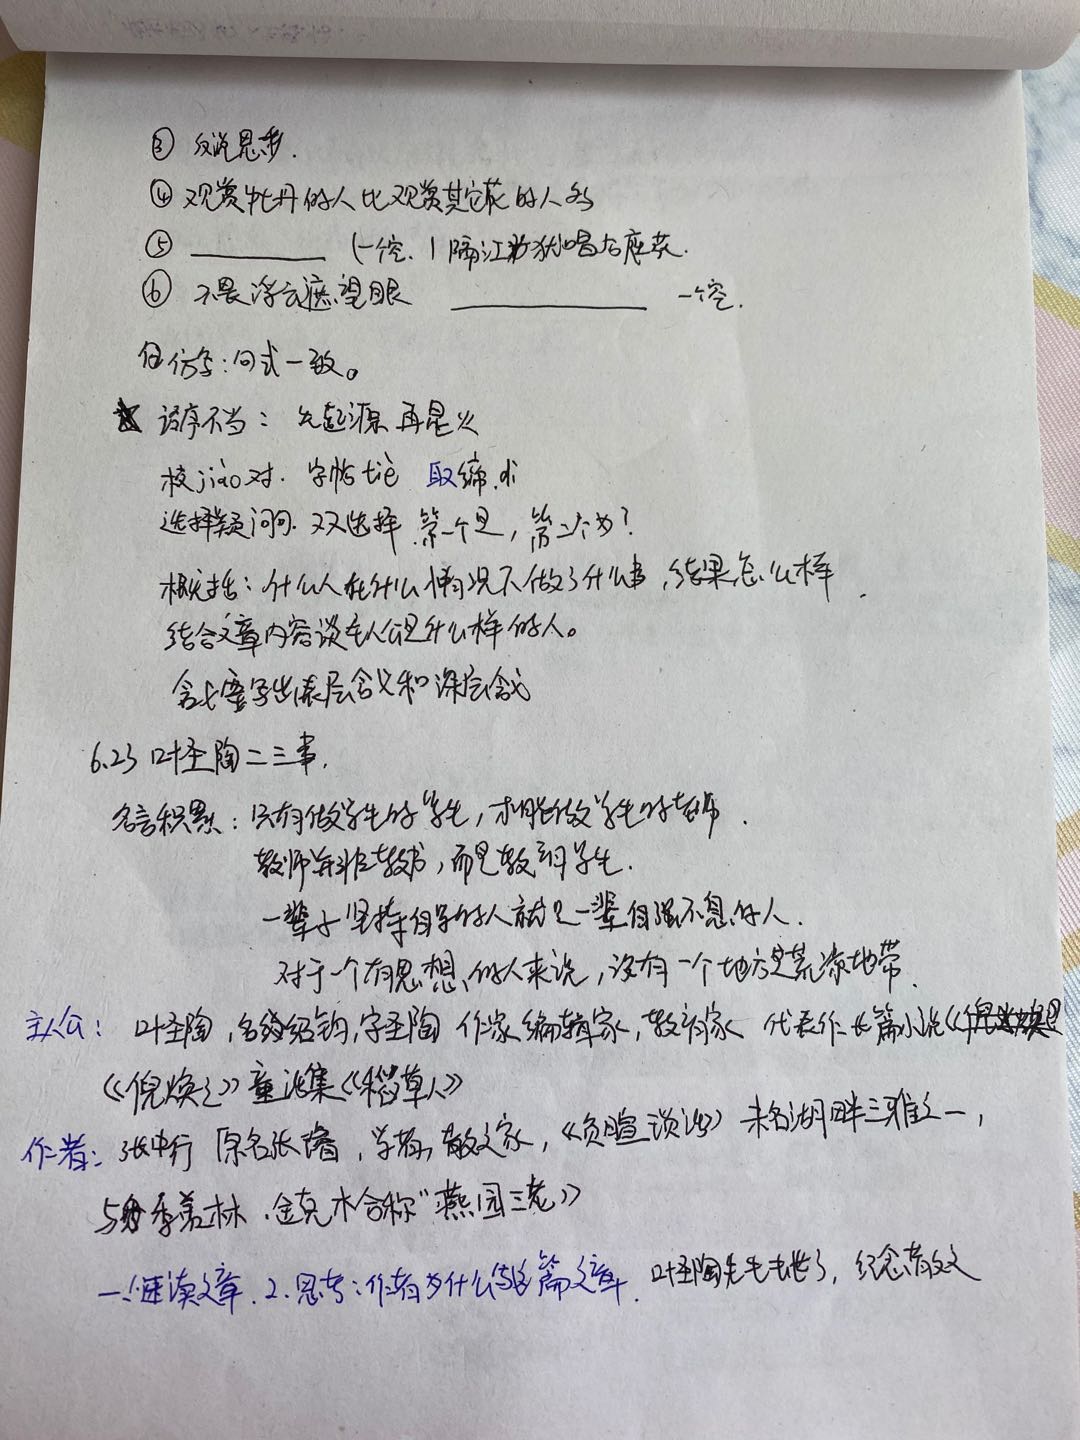 ③ 反说思乡.
④ 观赏牡丹的人比观赏其它花的人多
⑤ ________ (一空. 隔江犹唱后庭花.
⑥ 不畏浮云遮望眼 ________ 一个空.
仿写:句式一致。
★ 语序不当: 先起源再是火
校jiào对. 字帖tiè 取缔dì
选择疑问句. 双选择 第一个是, 第二个为?
概括: 什么人在什么情况下做了什么事, 结果怎么样.
结合文章内容谈主人公是什么样的人。
含义要写出表层含义和深层含义
6.23 叶圣陶二三事.
名言积累: 只有做学生的学生, 才能做学生的老师.
教师并非教书, 而是教育学生.
一辈子坚持自学的人就是一辈自强不息的人.
对于一个有思想的人来说, 没有一个地方是荒凉地带.
主人公: 叶圣陶, 名绍钧, 字圣陶 作家 编辑家, 教育家 代表作 长篇小说
《倪焕之》童话集《稻草人》
作者: 张中行 原名张璿, 学者, 散文家, 《负暄琐话》 未名湖畔三雅之一,
与季羡林.金克木合称“燕园三老》
一.速读文章. 2.思考:作者为什么写这篇文章. 叶圣陶先生去世了, 纪念散文